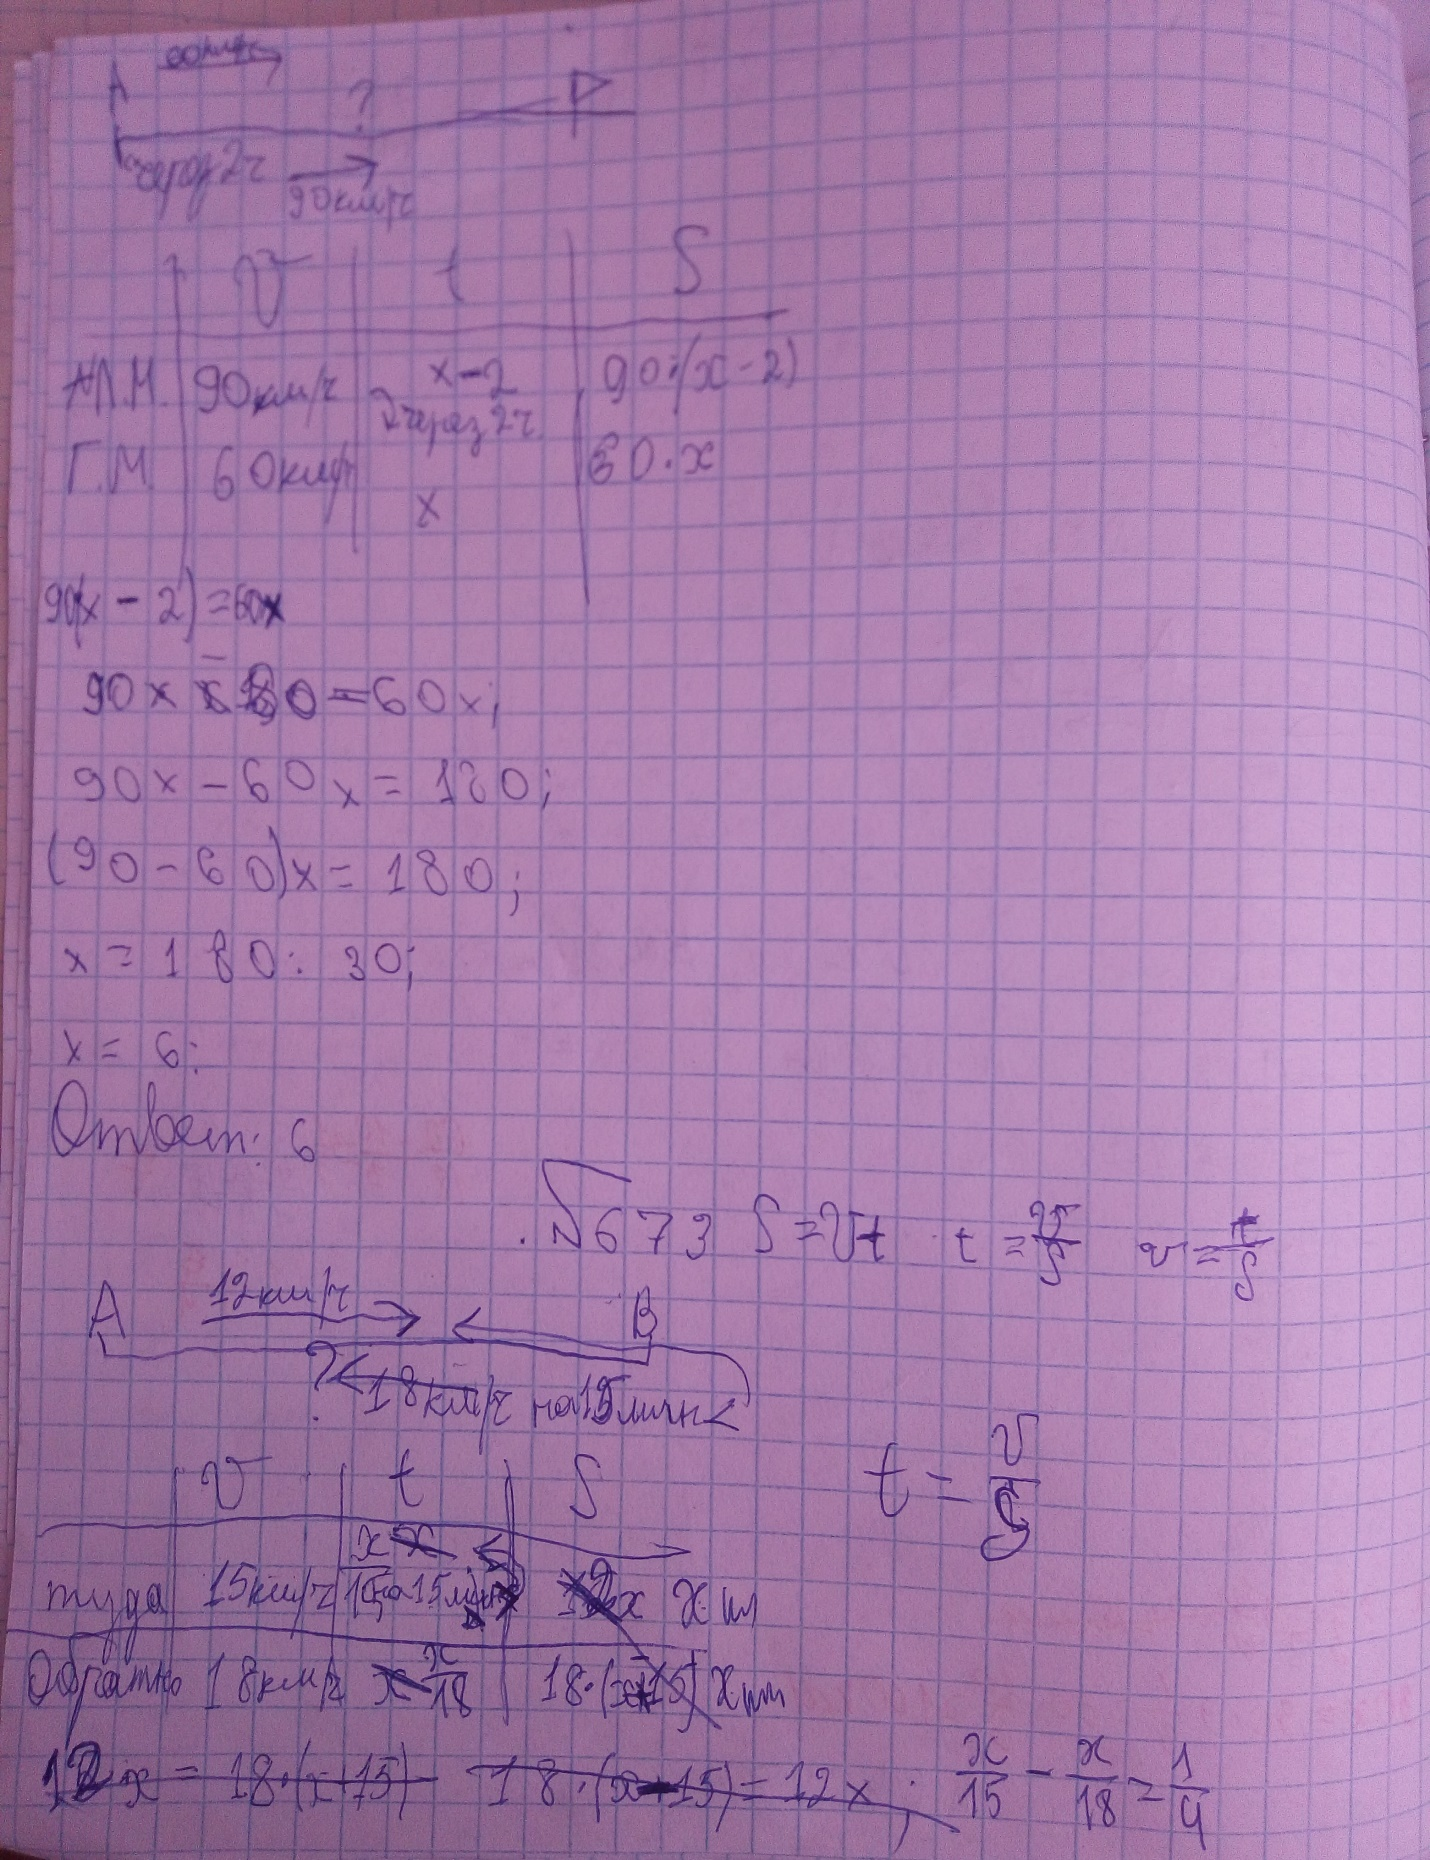 60км/ч
A ?
через 2ч 90км/ч
V t S
90км/ч x-2 90·(x-2)
через 2ч
Г.М. 60км/ч 60·x
x
90(x-2)=60x
90x-180=60x;
90x-60x=180;
(90-60)x=180;
x=180:30;
x=6;
Ответ: 6
673 S=Vt t=V/S v=t/S
A 12км/ч B
? 18км/ч на 15мин<
V t S
t=V/S
туда 15км/ч x/15 на 15мин x км
Обратно 18км/ч x/18 18·(x+15) x км
12x=18·(x+15) 18·(x-15)=12x; x/15-x/18=1/4